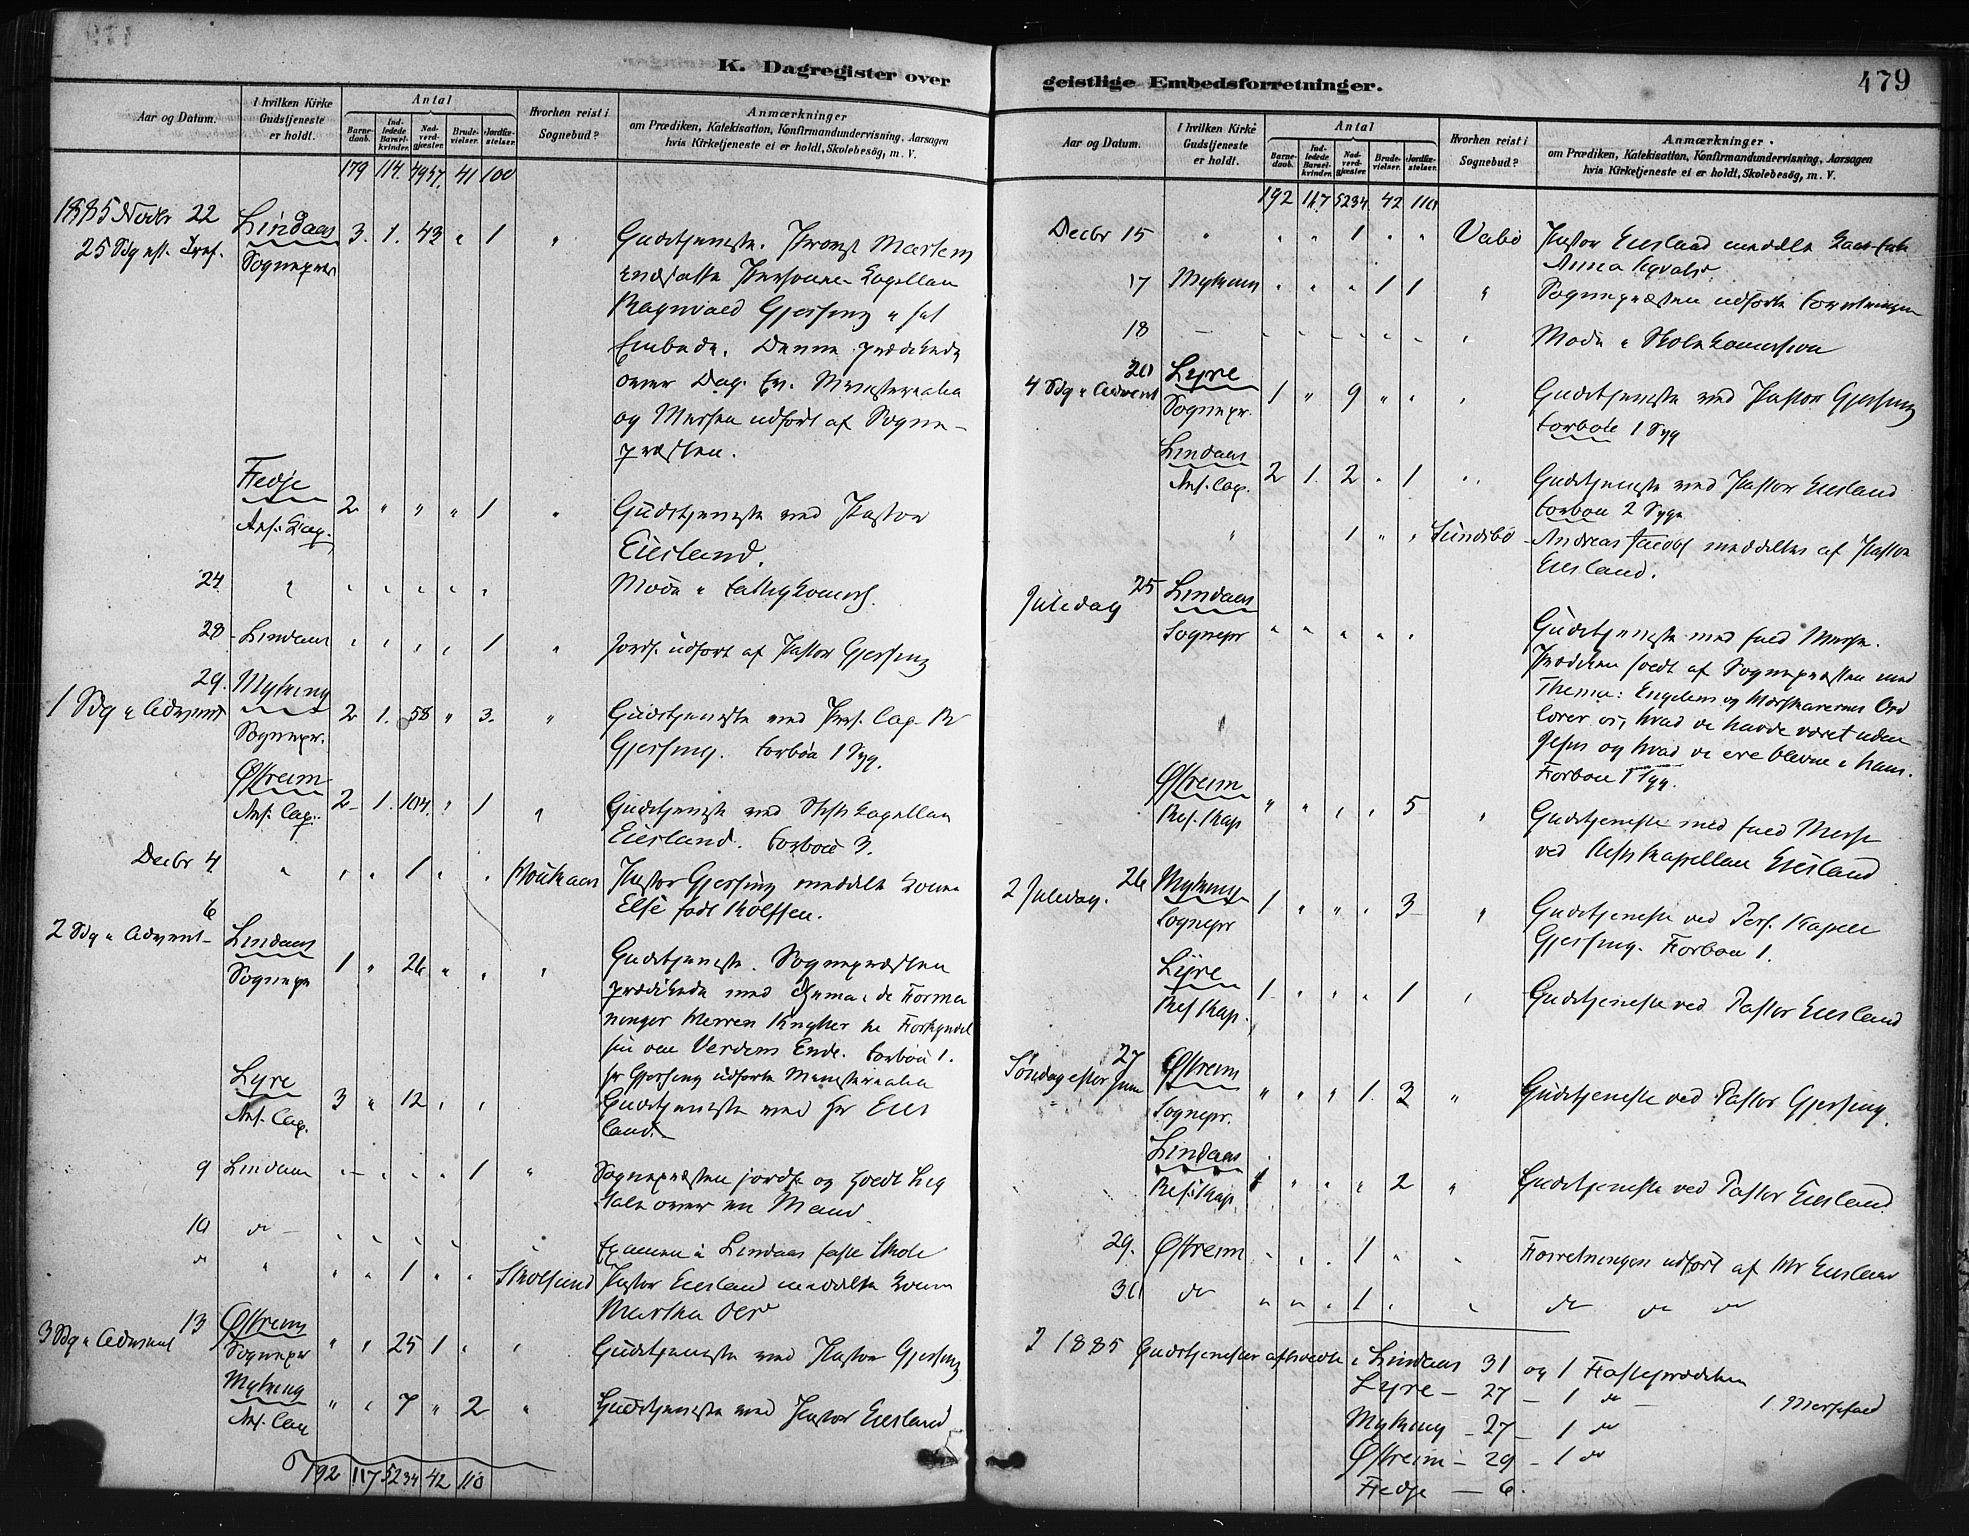 K. Dagregister over
Aar og Datum.
I hvilken Kirke Gudstjeneste er holdt.
Antal
Barnedaab.
Indledede Barselkvinder.
Nadverdgjæster.
Brudevielser.
Jordfæstelser.
Hvorhen reist i Sognebud?
Anmærkninger
om Prædiken, Katekisation, Konfirmandundervisning, Aarsagen
hvis Kirketjeneste ei er holdt, Skolebesøg, m. V.
179 114. 4957. 41 100
1885 Novbr 22 Lindaas 3. 1. 43 " 1 "
25 Sdg eft. Tref. Sognepr
Gudstjeneste. Provst Martens
indsatte Personel Capellan
Ragnvald Gjessing i sit
Embede. Denne prædikede
over Dag. Ev. Ministerialia
og Messen udført af Sogne-
præsten.
Fedje 2 " " " 1 " Gudstjeneste ved Pastor
Res. Cap. Eiesland.
24 " " " " " " Møde i Fattigkomiss.
28 Lindaas " " " " 1 " Jordf. udført af Pastor Gjessing
29. Myking
1 Sdg i Advent 2 1. 58 " 3. " Gudstjeneste ved Pers. Cap. R
Sognepr. Gjessing. Forbøn 1 Syg.
Østreim
Res. Cap. 2 1. 104. " 1 " Gudstjeneste ved Capellan
Eiesland. Forbøn 3.
Decbr 4 " " " 1 " " Pastor Gjessing meddelte Konen
Else født Rolfsen.
6
2 Sdg i Advent Lindaas
Sognepr 1 " 26 " " " Gudstjeneste. Sognepræsten
prædikede med Thema: de Forma
ninger Herren knytter til Forkyndel
sen om Verdens Ende. Forbøn 1.
Hr Gjessing udførte Ministerialia
Lyre
Res. Cap. 3 " 12 " " Gudstjeneste ved Hr Eies
land.
9 Lindaas " " " " 1 " Sognepræsten jordf. og holdt Lig
tale over en Mand
10 do Examen i Lindaas faste Skole
do " " " 1 " " Pastor Eiesland meddelte Konen
Martha
13 Østreim
3 Sdg i Advent Sognepr " " 25 1 " " Gudstjeneste ved Pastor Gjessing
Myking
Res. Cap " " 7 " 2 " Gudstjeneste ved Pastor Eiesland
192 117 5234 42 110
geistlige Embedsforretninger.
479
Aar og Datum.
I hvilken Kirke Gudstjeneste er holdt.
Antal
Barnedaab.
Indledede Barselkvinder.
Nadverdgjæster.
Brudevielser.
Jordfæstelser.
Hvorhen reist i Sognebud?
Anmærkninger
om Prædiken, Katekisation, Konfirmandundervisning, Aarsagen
hvis Kirketjeneste ei er holdt, Skolebesøg, m. V.
192 117 5234 42 110
Decbr 15 " " " 1 " " Vabø Pastor Eiesland meddelte
Anna
17 Myking " " " 1 1 " Sognepræsten udførte Forretningen
18 — " " " " " " Møde i Skolekommission
20 Lyre
4 Sdg i Advent Sognepr. 1 " 9 " " " Gudstjeneste ved Pastor Gjessing
Forbøn 1 Syg
Lindaas
Res. Cap. 2 1. 2 " 1 " Gudstjeneste ved Pastor Eiesland
Forbøn 2 Syge
" 1 " " Sundsbø Andreas Jacobs meddeltes af Pastor
Eiesland.
25 Lindaas
Juledag Sognepr " " " " " Gudstjeneste med fuld Messe.
Prædiken holdt af Sognepræsten med
Thema: Engelens og Hærskarernes Ord
lærer os, hvad vi havde været uden
Jesus og hvad vi ere blevne i ham.
Forbøn 1 Syg.
Østreim
Res. Kap " " " " 5 " Gudstjeneste med fuld Messe
ved Kapellan Eiesland
26 Myking
2 Juledag. Sognepr 1 " " " 3 " Gudstjeneste ved Pers. Kapell
Gjessing. Forbøn 1.
Lyre
Res Kap. 1 " " " 1 " Gudstjeneste ved Pastor Eiesland
27 Østreim
Søndag efter Juul Sognepr. " " " 1. 3 " Gudstjeneste ved Pastor Gjessing.
Lindaas
Res. Kap. 1 " " " 2 " Gudstjeneste ved Pastor Eiesland
29. Østreim " " " 1 " " Forretningen udført af Hr Eiesland
30 do " " " 1 " " do do do
I 1885 Gudstjenester afholdte i Lindaas 31 og 1 Fasteprædiken
Lyre — 27 — 1 do — 1 Messefald
Myking — 27 — 1 do
Østreim — 29 — 1 do
Fedje — 6.